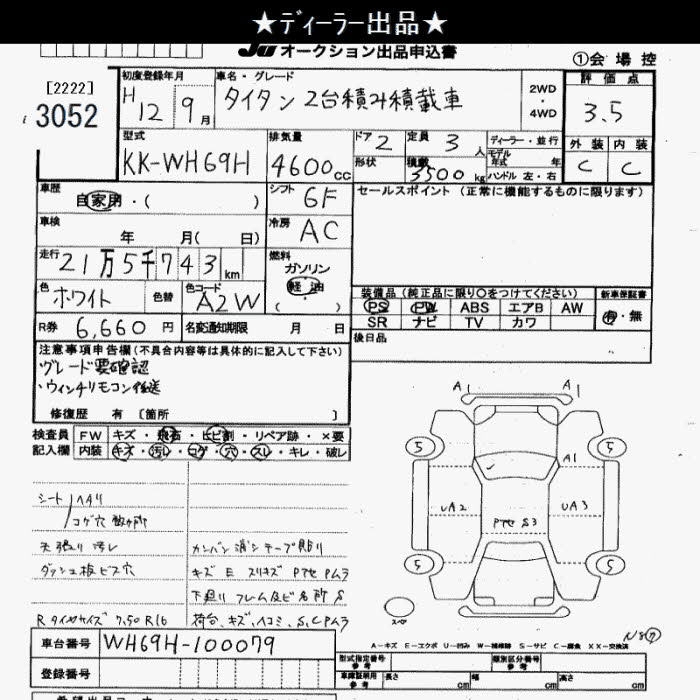 ★ディーラー出品★
JU オークション出品申込書
①会場控
[2222]
3052
初度登録年月
H12年 9月
車名・グレード
タイタン 2台積み積載車
2WD
・
4WD
評価点
3.5
型式
KK-WH69H
排気量
4600cc
ドア 2
形状
定員 3人
積載 3500kg
ディーラー・並行
モデル年式 年
ハンドル 左・右
外装 内装
C C
車歴
自家用・( )
シフト 6F
セールスポイント (正常に機能するものに限ります)
車検
年 月( 日)
冷房 AC
走行
21万5千743km
燃料
ガソリン
軽油
( )
色 ホワイト
色替
色コード A2W
装備品 (純正品に限り○をつけてください)
新車保証書
PS PW ABS エアB AW
有・無
SR ナビ TV カワ
R券 6,660円
名変通知期限 月 日
後日品
注意事項申告欄(不具合内容等は具体的に記入して下さい)
グレード要確認
・ウィンチリモコン後送
修復歴 有 [箇所 ]
検査員 FW キズ・飛石・ヒビ割・リペア跡・×要
記入欄 内装 キズ・汚レ・コゲ・穴・スレ・キレ・破レ
シート ヘタリ
コゲ穴 数ヶ所
天張り汚レ
カンバン消シテープ貼り
ダッシュ板ビス穴
キズ E スリキズ
下廻り フレーム及ビ各所 S
Rタイヤサイズ 7,50R16
荷台、キズ、ヘコミ、S、C
A1 A1
5 5
A1
UA2 UA3
S3
5 5
スペ
A-キズ E-エクボ U-凹み W-補修跡 S-サビ C-腐食 XX-交換済
車台番号 WH69H-100079
登録番号
型式指定番号 参考
類別区分番号 参考
車庫証明用 参考
長さ cm 幅 cm 高さ cm